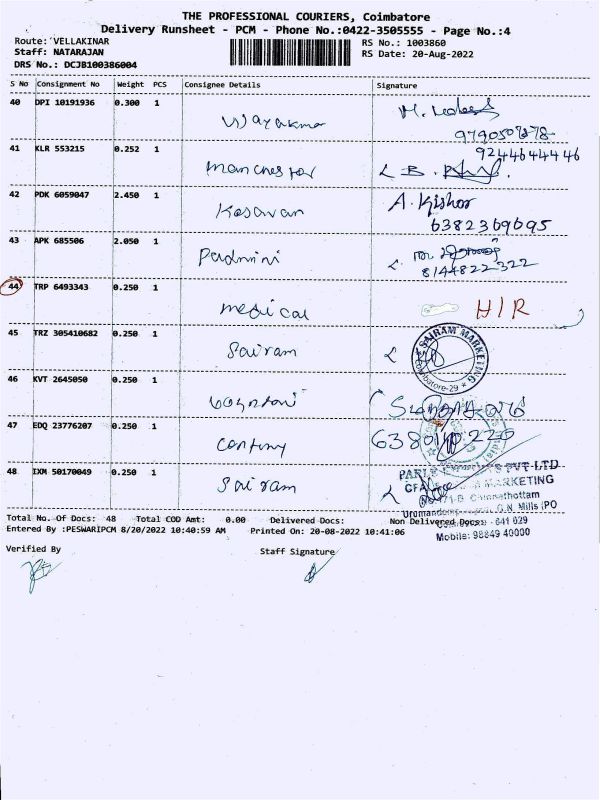 THE PROFESSIONAL COURIERS, Coimbatore
Delivery Runsheet - PCM - Phone No.:0422-3505555 - Page No.:4
Route: VELLAKINAR
RS No.: 1003860
Staff: NATARAJAN
RS Date: 20-Aug-2022
DRS No.: DCJB100386004
S No Consignment No Weight PCS Consignee Details Signature
40 DPI 10191936 0.300 1 Vijayakumar
41 KLR 553215 0.252 1 Manchester
9244644446
42 PDK 6059047 2.450 1 Kesavan A. Kishor
6382369695
43 APK 685506 2.050 1 Padmini
8144822322
44 TRP 6493343 0.250 1 medical H/R
45 TRZ 305410682 0.250 1 Sairam
SAIRAM MARKETING
Coimbatore-29
46 KVT 2645050 0.250 1
47 EDQ 23776207 0.250 1
48 IXM 50170049 0.250 1 Sairam
PVT LTD
MARKETING
G.N. Mills (PO
641 029
Mobile: 98849 40000
Total No. Of Docs: 48 Total COD Amt: 0.00 Delivered Docs: Non Delivered Docs:
Entered By :PESWARIPCM 8/20/2022 10:40:59 AM Printed On: 20-08-2022 10:41:06
Verified By Staff Signature